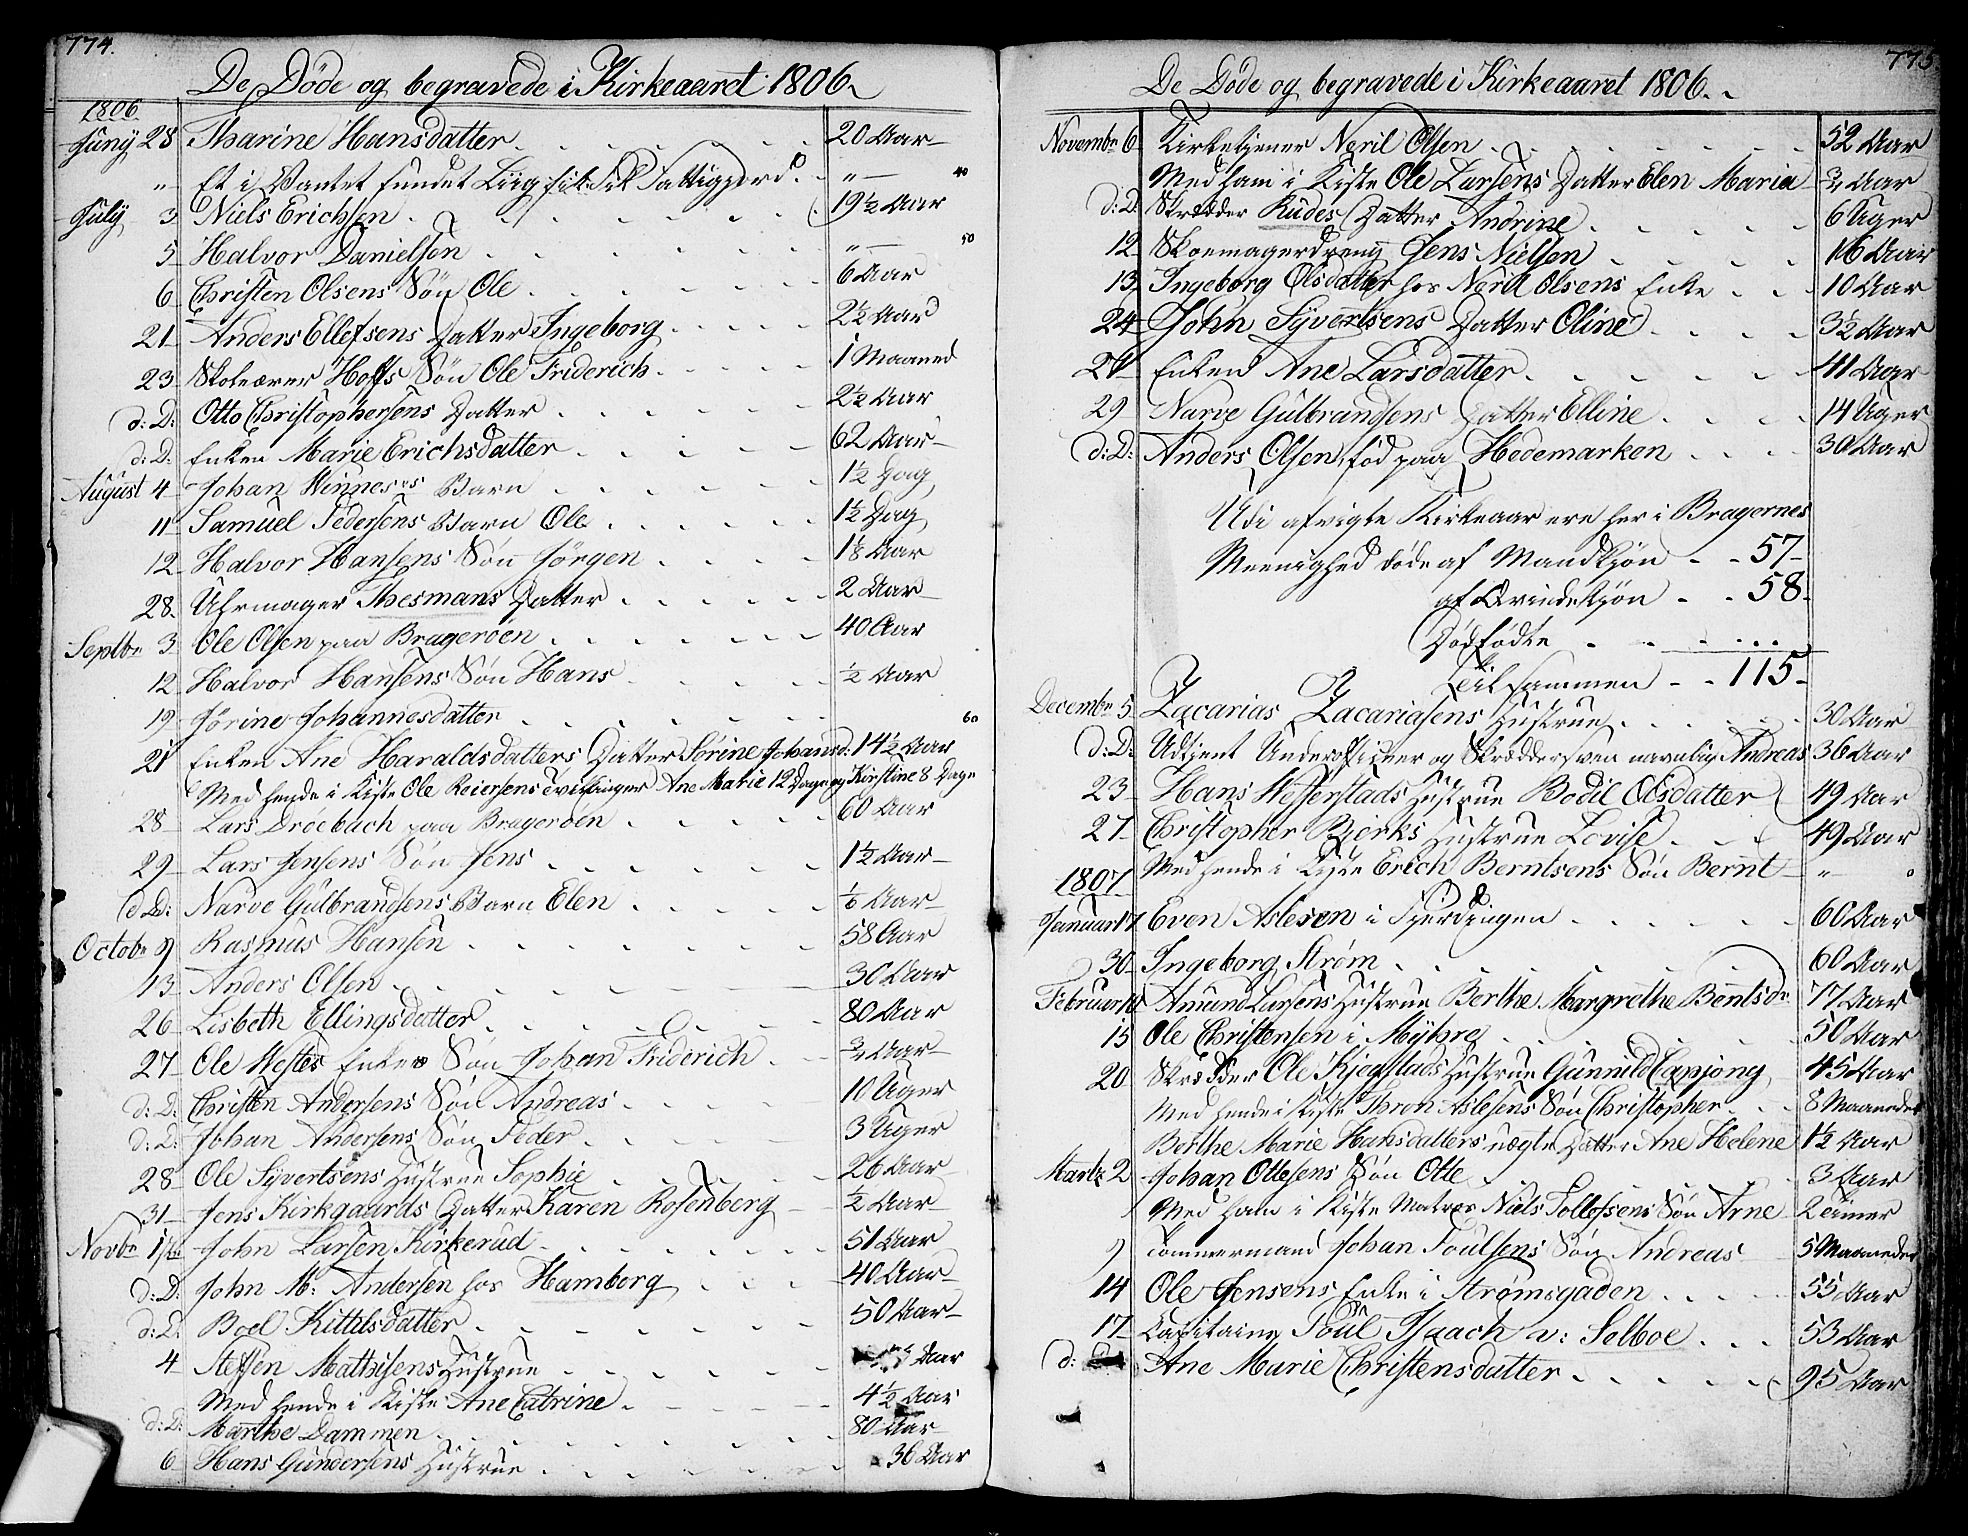 774.
De Døde og begravede i Kirkeaaret 1806.
1806.
Juny 28 Marine Hansdatter 20 Aar
" Et i Vandet fundet Liig fik frit Fattigjord. " 40
July 3 Niels Erichsen 19½ Aar
5 Halvor Danielsen " 50
6 Christen Olsens Søn Ole 6 Aar
21 Anders Ellefsens Datter Ingeborg 2½ Aar
23 Skolelærer Hoffs Søn Ole Friderich 1 Maaned
d: D: Otto Christophersens Datter 2½ Aar
d: D: Enken Marie Erichsdatter 62 Aar
August 4 Johan Winnes's Barn 1½ Dag
11 Samuel Pedersens Barn Ole 1½ Dag
12 Halvor Hansens Søn Jörgen 1⅛ Aar
28 Uhrmager Thesmans Datter 2 Aar
Septbr 3 Ole Olsen paa Bragerøen 40 Aar
12 Halvor Hansens Søn Hans ½ Aar
19 Jörine Johannesdatter 60
21 Enken Ane Haraldsdatters Datter Sörine Johansd: 14½ Aar
Med hende i Kiste Ole Reiersens Tvillinger Ane Marie 12 Dage og Kirstine 8 Dage
28 Lars Dröebach paa Bragerøen 60 Aar
29 Lars Jensens Søn Jens 1½ Aar
d: D: Narve Gulbrandsens Barn Elen Aar
Octobr 9 Rasmus Hansen 58 Aar
13 Anders Olsen 30 Aar
26 Lisbeth Ellingsdatter 80 Aar
27 Ole Westes Enkes Søn Johan Friderich ¾ Aar
d: D: Christen Andersens Søn Andreas 10 Uger
d: D: Johan Andersens Søn Peder 3 Uger
28 Ole Syvertsens Hustrue Sophie 26 Aar
31 Jens Kirkgaards Datter Karen Rosenberg ½ Aar
Novbr 1ste John Larsen Kirkerud 51 Aar
d: D: John M: Andersen hos Hamborg 40 Aar
d: D: Boel Kittelsdatter 50 Aar
4 Steffen Mathisens Hustrue Aar
Med hende i Kiste Ane Catrine 4½ Aar
d: D: Marthe Dammen 80 Aar
6 Hans Gundersens Hustrue 36 Aar
775
De Døde og begravede i Kirkeaaret 1806.
Novembr 6 Kirketjener Neril Olsen 52 Aar
Med ham i Kiste Ole Larsens Datter Elen Maria ¾ Aar
d: D: Skrædder Rudes Datter Andrine 6 Uger
12 Skoemagerdreng Jens Nielsen 16 Aar
13 Ingeborg Olsdatter hos Neril Olsens Enke 10 Aar
24 John Syvertsens Datter Oline 3½ Aar
24 Enken Ane Larsdatter 41 Aar
29 Narve Gulbrandsens Datter Elline 14 Uger
d: D: Anders Olsen, fød paa Hedemarken 30 Aar
Udi afvigte Kirkeaar ere her i Bragernes
Meenighed døde af Mandkjøn 57
af Qvindekjøn 58
Dødfødte ...
Tilsammen 115
Decembr 5 Zacarias Zacariasens Hustrue 30 Aar
d: D: Udtient Underofficeer og Skræddersven navnlig Andreas 36 Aar
23 Hans Westerstads Hustrue Bodil Olsdatter 49 Aar
27 Christopher Bjerks Hustrue Lovise 49 Aar
Med hende i Kiste Erich Berntsens Søn Bernt "
1807
Januar 17 Even Aslesen i Fjerdingen 60 Aar
30 Ingeborg Strøm 60 Aar
Februar Amund Larsens Hustrue Berthe Margrethe Bentsdr 77 Aar
15 Ole Christensen i Myhre 50 Aar
20 Skrædder Ole Kjegstads Hustrue Gunnild Capjong 45 Aar
Med hende i Kiste Thron Aslesens Søn Christopher 8 Maaneder
Berthe Marie Hansdatters uægte Datter Ane Helene 1½ Aar
Martz 2 Johan Ottesens Søn Otte 3 Aar
Med ham i Kiste Matros Niels Tollefsens Søn Arne 2 Timer
9 Tømmermand Johan Poulsens Søn Andreas 5 Maaneder
14 Ole Jensens Enke i Strømsgaden 55 Aar
17 Capitaine Poul Isaach v: Solboe 53 Aar
d: Ane Marie Christensdatter 95 Aar